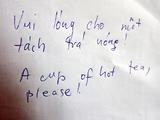 Vui lòng cho một
tách trá nóng!
A cup of hot tea,
please!